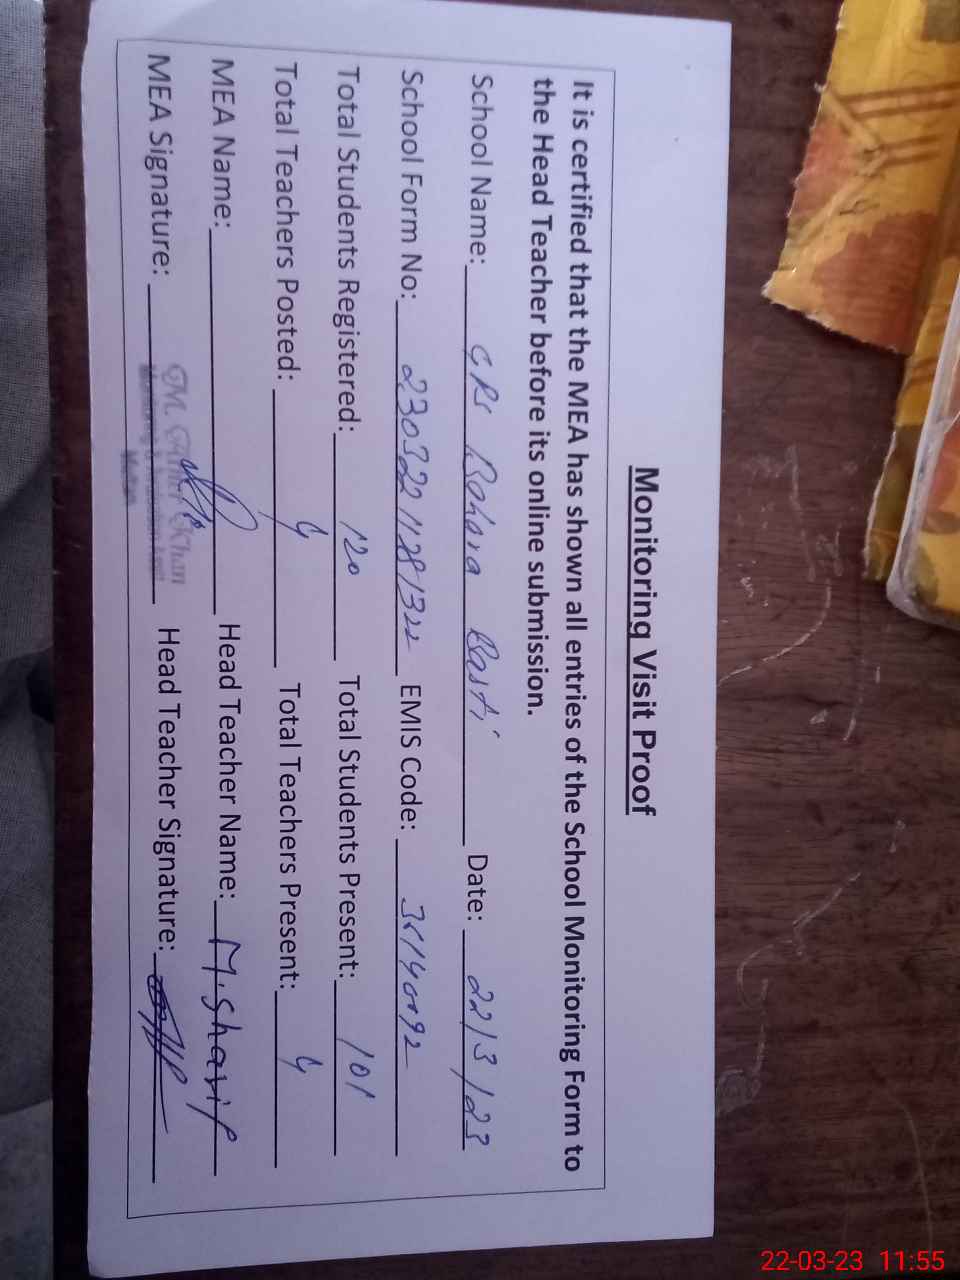 Monitoring Visit Proof
It is certified that the MEA has shown all entries of the School Monitoring Form to
the Head Teacher before its online submission.
School Name: GPS Bohara Basti Date: 22/3/23
School Form No: EMIS Code:
Total Students Registered: 120 Total Students Present: 101
Total Teachers Posted: 4 Total Teachers Present: 4
MEA Name: Head Teacher Name: M. Sharif
MEA Signature: Head Teacher Signature:
22-03-23 11:55